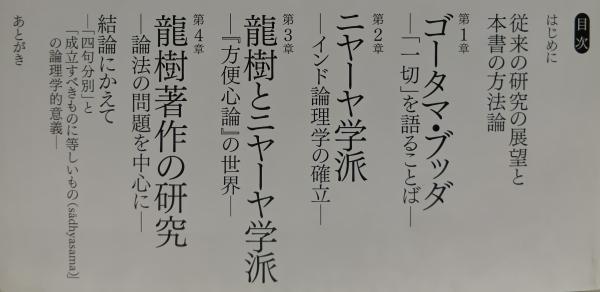 目次
はじめに
従来の研究の展望と
本書の方法論
第1章
ゴータマ・ブッダ
―「一切」を語ることば―
第2章
ニヤーヤ学派
―インド論理学の確立―
第3章
龍樹とニヤーヤ学派
―『方便心論』の世界―
第4章
龍樹著作の研究
―論法の問題を中心に―
結論にかえて
―「四句分別」と
「成立すべきものに等しいもの(sādhyasama)」
の論理学的意義―
あとがき